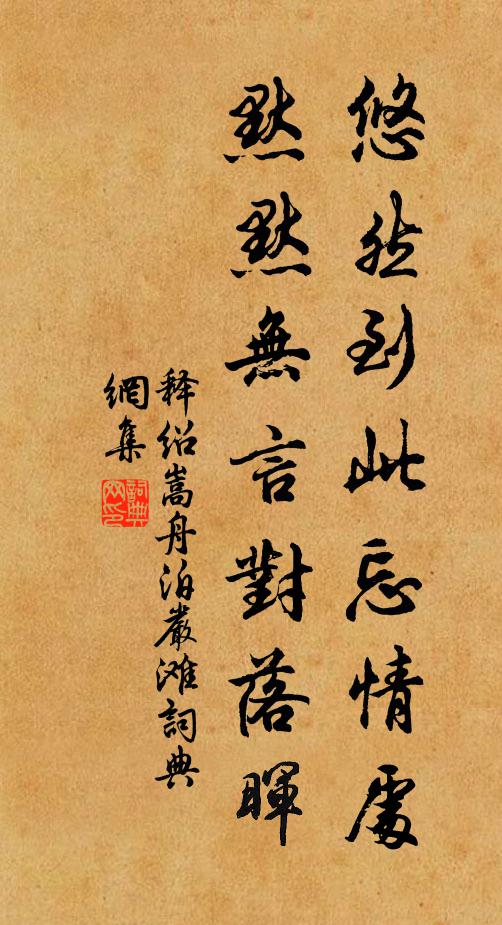 悠然到此忘情處
默默無言對落暉
释绍嵩舟泊嚴滩詞典
網集
詞典
网印